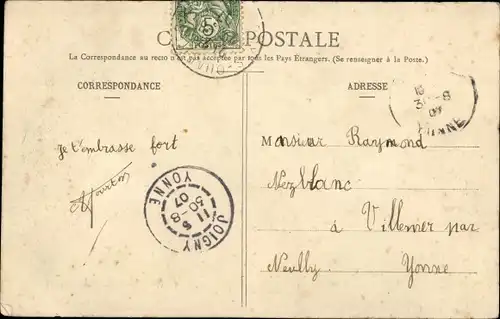 CARTE POSTALE
La Correspondance au recto n'est pas acceptée par tous les Pays Etrangers. (Se renseigner à la Poste.)
CORRESPONDANCE
ADRESSE
Je t'embrasse fort
Monsieur Raymond
à Villemer par
Neuilly Yonne
JOIGNY
11 5
30-8
07
YONNE
5
YONNE